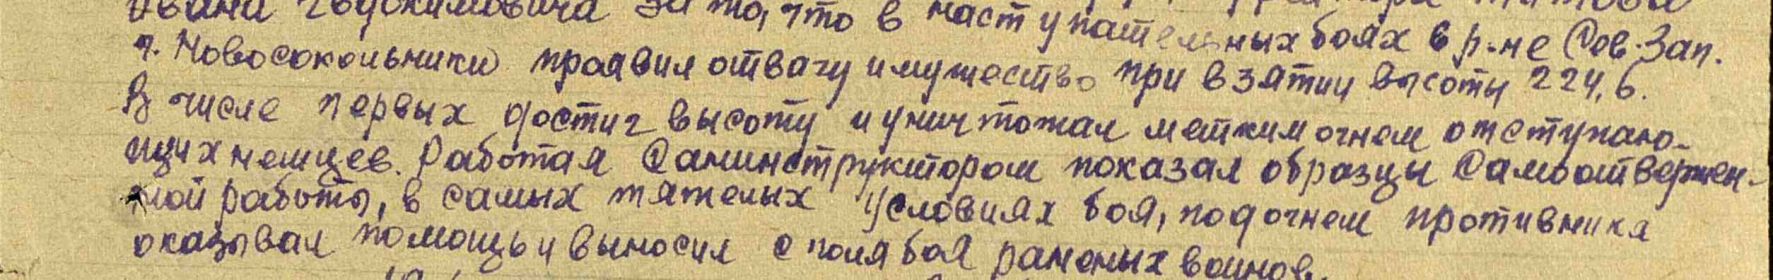 Ивана Евдокимовича за то, что в наступательных боях в р-не Сев. Зап.
г. Новосокольники проявил отвагу и мужество при взятии высоты 224,6.
В числе первых достиг высоту и уничтожал метким огнем отступаю-
щих немцев. Работая Санинструктором показал образцы Самоотвержен-
ной работы, в самых тяжелых условиях боя, под огнем противника
оказывал помощь и выносил с поля боя раненых воинов.